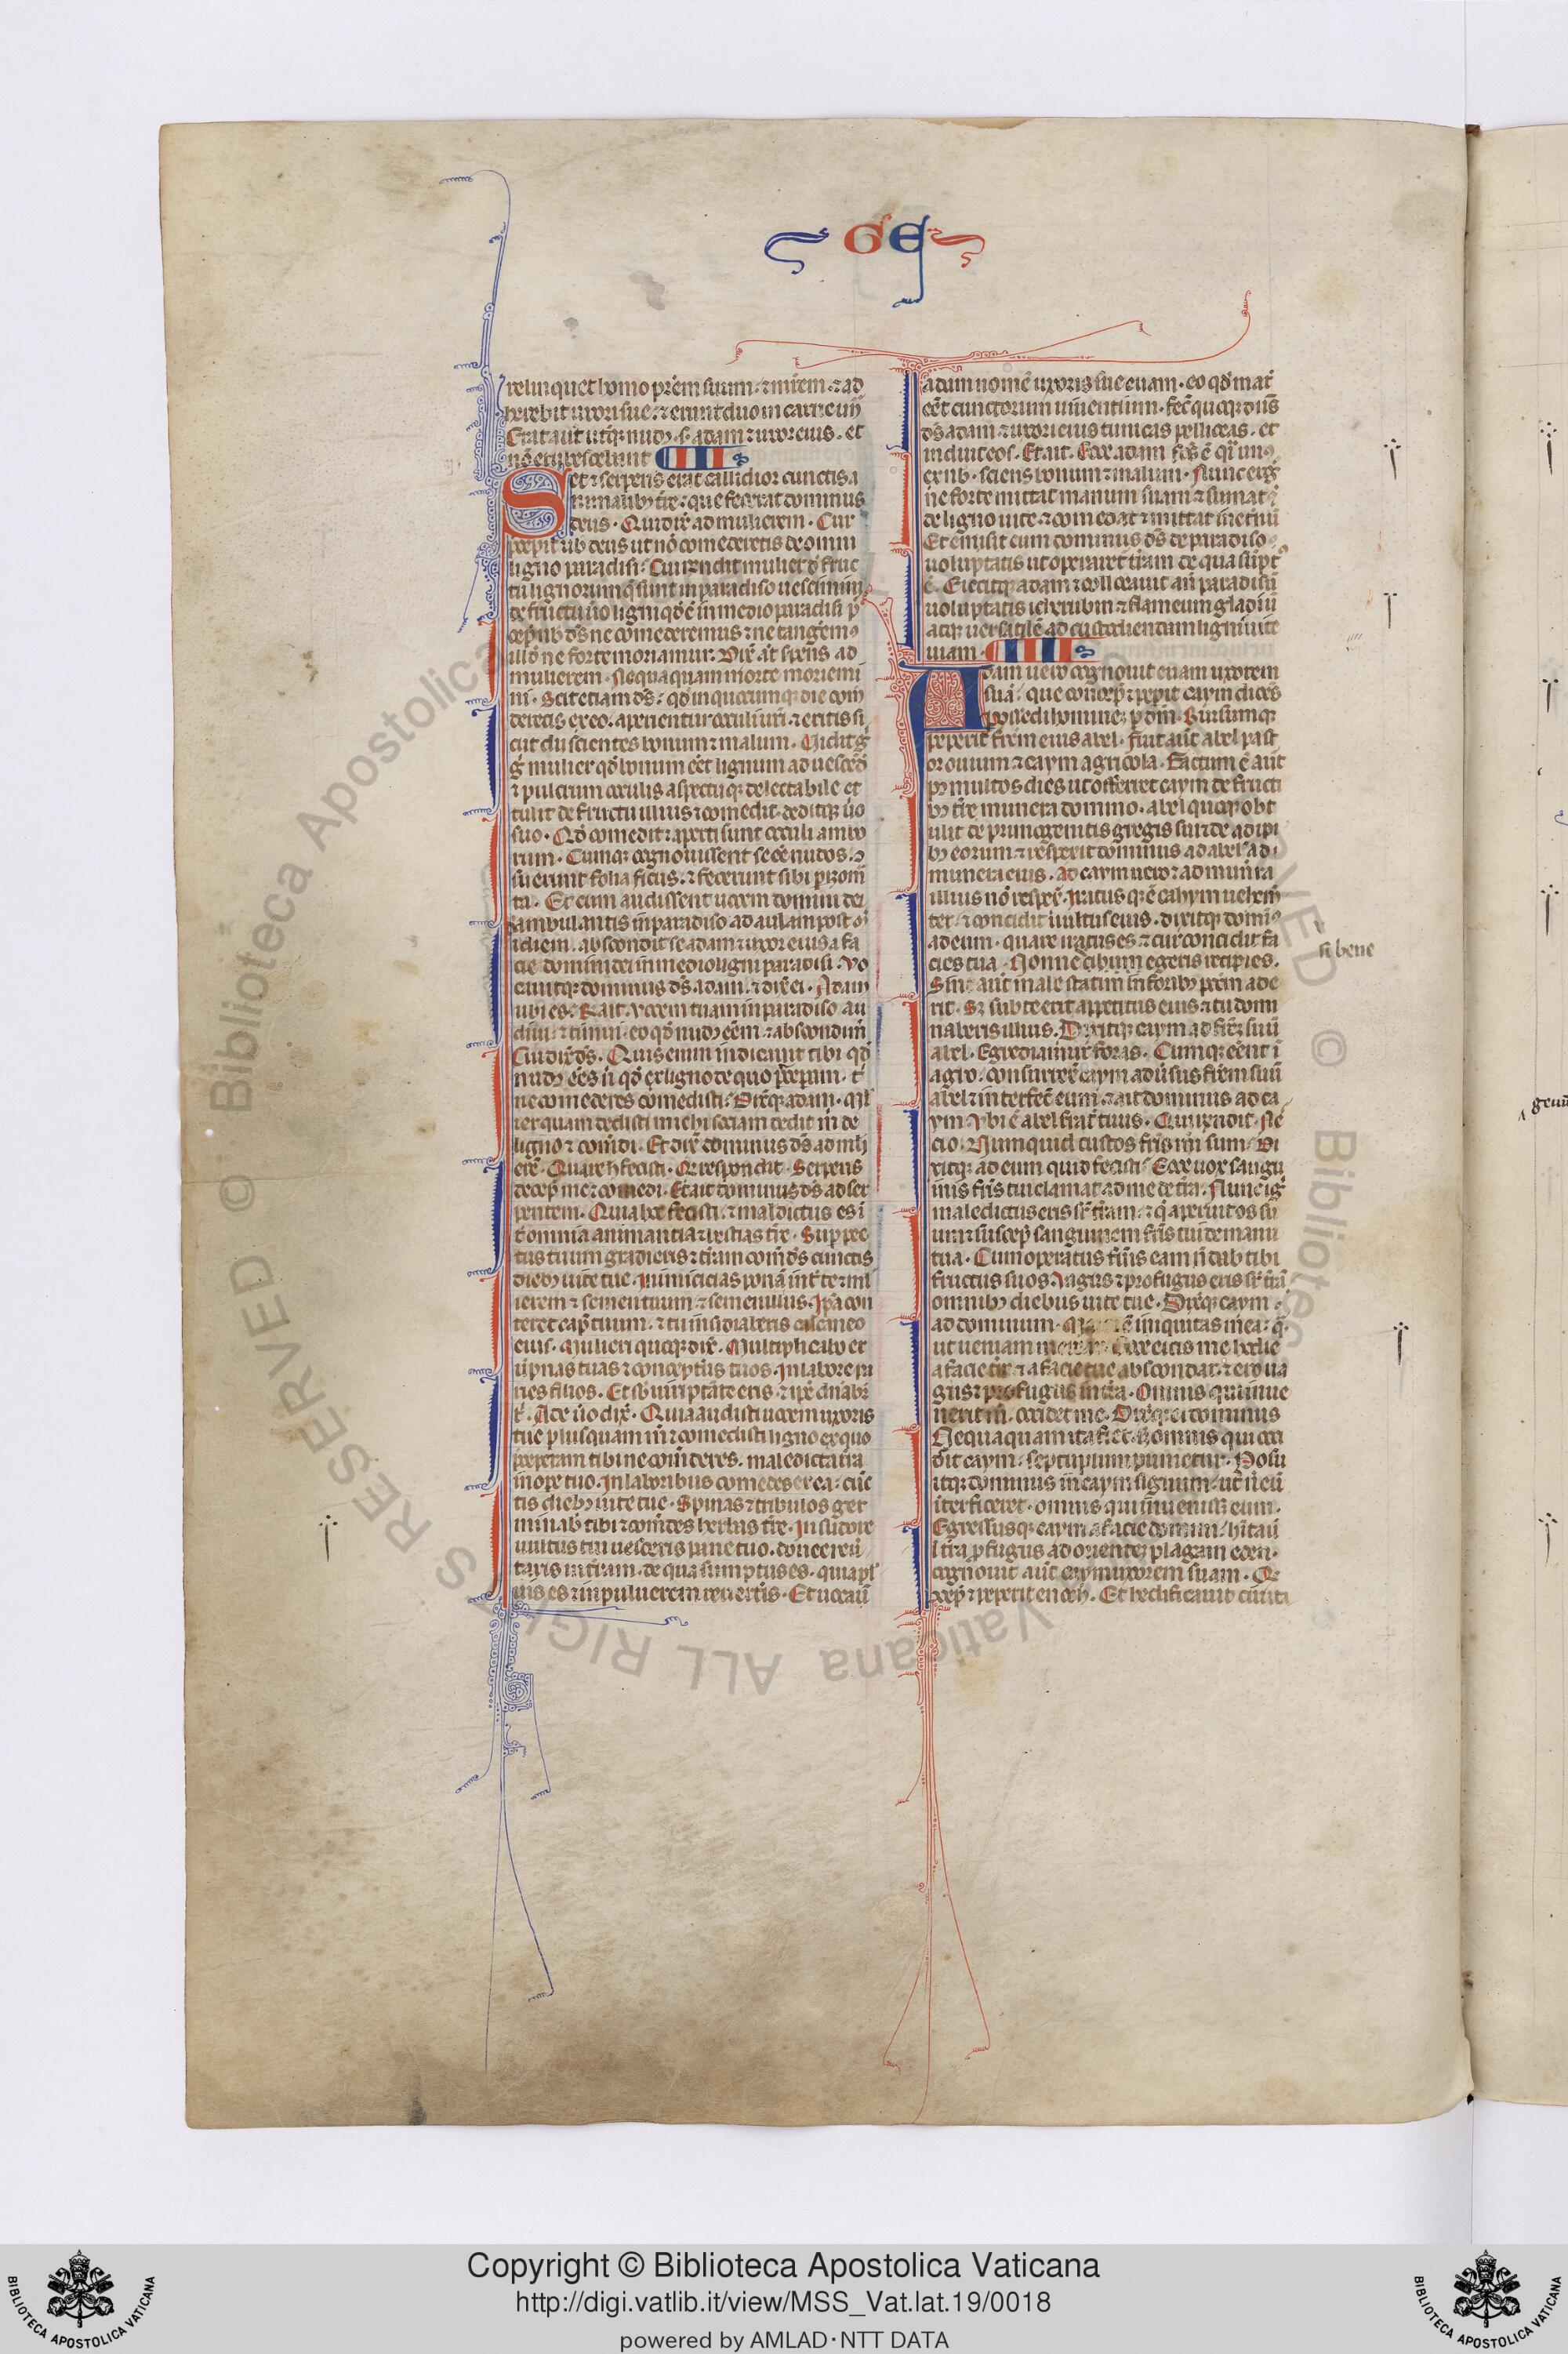 GE
relinquet homo prēm suum ⁊ mr̄em ⁊ ad
herebit uxori sue ⁊ erunt duo in carne una
Erāt aūt utq̄ nudꝫ s. adam ⁊ uxor eius. et
nō erubescebant III
Set ⁊ serpens erat callidior cunctis a
nimantibꝫ tr̄e que fecerat dominus
deus. Qui dix̄ ad mulierem. Cur
precepit uob deus ut nō comederetis de omni
ligno paradisi. Cui rn̄dit mulier d̄ fruc
tu lignorum q̄ sunt in paradiso uescimur
de fructu ūo ligni qd̄ ē in medio paradisi p̄
cep̄ nob ds̄ ne comederemus ⁊ ne tangēmꝰ
illd̄ ne forte moriamur. Dix̄ aūt s̄pens ad
mulierem. Nequaquam morte moriemi
ni. Scit etiam ds̄ qd̄ in quocumqꝫ die com
deretis ex eo. aperientur oculi ur̄i ⁊ eritis si
cut dii scientes bonum ⁊ malum. Vidit g̊
g̊ mulier qd̄ bonum eēt lignum ad uescēd̄
⁊ pulcrum oculis aspectuqꝫ delectabile et
tulit de fructu illius ⁊ comedit. deditqꝫ uiro
suo. Qd̄ comedit ⁊ aperti sunt oculi ambo
rum. Cumqꝫ cognouissent se eē nudos. 
suerunt folia ficus. ⁊ fecerunt sibi perizom̄
ta. Et cum audissent uocem domini dei
ambulantis in paradiso ad auram post
idiem. abscondit se adam ⁊ uxor eius a fa
cie domini dei in medio ligni paradisi. Vo
cauitqꝫ dominus ds̄ adam. ⁊ dix̄ ei. Adam
ubi es. Et ait. Vocem tuam in paradiso au
diui. ⁊ timui eo qd̄ nudꝫ eēm ⁊ abscondi m̄
Cui dix̄ ds̄. Quis enim indicauit tibi qd̄
nudꝫ eēs n̄ qd̄ ex ligno de quo p̄ceperam t̄
ne comederes comedisti. Dixitqꝫ adam. Mul
ier quam dedisti michi sociam dedit m̄ de
ligno ⁊ comedi. Et dix̄ dominus ds̄ ad mli
erē. Quare h̄ fecisti. Q̄ respondit. Serpens
decep̄ me ⁊ comedi. Et ait dominus ds̄ ad ser
pentem. Quia hoc fecisti. ⁊ maldictus es ī
t̄ omnia animantia ⁊ bestias tr̄e. Sup̄ pec
tus tuum gradieris ⁊ tr̄am com̄ds̄ cunctis
diebꝫ uite tue. Inimicicias ponā int̄ te ⁊ mul
ierem ⁊ semen tuum ⁊ semen illius. Ipa con
teret cap̄ tuum. ⁊ tu insidiaberis calcaneo
eius. Mulieri quoqꝫ dix̄. Multiplicabo er
umpnas tuas ⁊ conceptus tuos. In labore pa
ries filios. Et sb̄ uiri p̄tāte eris ⁊ ip̄e dn̄abit̄
t̄. Ade ūo dix̄. Quia audisti uocem uxoris
tue plusquam m̄ ⁊ comedisti ligno ex quo
p̄ceperam tibi ne com̄deres. maledicta tr̄a
in ope tuo. In laboribus comedes ex ea. cūc
tis diebꝫ uite tue. Spinas ⁊ tribulos ger
minab̄ tibi ⁊ com̄des herbas tr̄e. In sudore
uultus tui uesceris pane tuo. donec reu
taris in tr̄am. de qua sumptus es. quia pl
uis es ⁊ in puluerem reuertis. Et uocaū
adam nomē uxoris sue euam. eo qd̄ mat̄
eēt cunctorum uiuentium. fec̄ quoqꝫ dn̄s
ds̄ adam ⁊ uxori eius tunicas pelliceas. et
induit eos. Et ait. Ecce adam factꝫ ē q̄i unꝰ
ex nob. sciens bonum ⁊ malum. Nunc erg̊
ne forte mittat manum suam ⁊ sumat
de ligno uite. ⁊ comedat ⁊ uiuat in et̄nū
Et emisit eum dominus ds̄ de paradiso
uoluptatis ut operaret̄ tr̄am de qua sūptꝰ
ē. Eiecitqꝫ adam ⁊ collocauit an̄ paradisū
uoluptatis cherubin ⁊ flameum gladiū
atqꝫ uersatilē ad custodiendam ligni uite
uiam. IIII
Adam uero cognouit euam uxorem
suā. que concep̄ ⁊ pep̄it caym dicēs
possedi homineꝫ p dm̄. Rursumqꝫ
peperit frēm eius abel. fuit aūt abel past
or ouium ⁊ caym agricola. Factum ē aūt
pꝰ multos dies ut offerret caym de fructi
bꝫ tr̄e munera domino. abel quoqꝫ obt
ulit de primogenitis gregis sui ⁊ de adipi
bꝫ eorum ⁊ respexit dominus ad abel ⁊ ad
munera eius. Ad caym uero ⁊ ad mun̄ra
illius nō respex̄. Iratus qꝫ ē cahym uehem̄
ter. ⁊ concidit uultus eius. dixitqꝫ domīꝰ
ad eum. quare iratus es ⁊ cur concidit fa
cies tua. Nonne bene egeris recipies.
si bene
Sin aūt male statim in foribꝫ pc̄m ade
rit. Sꝫ sub te erit appetitus eius ⁊ tu domi
naberis illius. Dixitqꝫ caym ad frēꝫ suū
abel. Egrediamur foras. Cumqꝫ eēnt ī
agro. consurrex̄ caym adūsus frēm suū
abel ⁊ interfec̄ eum. ⁊ ait dominus ad ca
ym vbi ē abel frat̄ tuus. Qui rn̄dit. Nes
cio. Numquid custos fr̄is m̄i sum. Di
xitqꝫ ad eum quid fecisti. Ecce uox sangu
inis fr̄is tui clamat ad me de tr̄a. Nunc ig̊
maledictus eris sr̄ tr̄am. ⁊ q̄ aperuit os su
um ⁊ suscep̄ sanguinem fr̄is tui de manu
tua. Cum operatus fūis eam n̄ dab tibi
fructus suos. Uagus ⁊ profugus eris sr̄ tr̄ā
omnibꝫ diebus uite tue. Dixitqꝫ caym
ad dominum. Maior ē iniquitas mea. q̄
ut ueniam merear. Ecce eicis me hodie
a facie tr̄e ⁊ a facie tue abscondar. ⁊ ero ua
gus ⁊ profugus in tr̄a. Omnis qui inue
nerit m̄. occidet me. Dixitqꝫ ei dominus
Nequaquam ita fiet. Homnis qui occi
dit caym. septuplum punietur. Posu
itqꝫ dominus in caym signum. ut n̄ eū
īterficeret. omnis qui inuenisꝫ eum.
Egressusqꝫ caym a facie domini. hitauit
ī tr̄a profugus ad orienteꝫ plagam eden.
cognouit aūt caym uxorem suam. Q̄
concep̄ ⁊ peperit enoch. Et hedificauit ciuita
Copyright © Biblioteca Apostolica Vaticana
http://digi.vatlib.it/view/MSS_Vat.lat.19/0018
powered by AMLAD·NTT DATA
BIBLIOTECA APOSTOLICA VATICANA
BIBLIOTECA APOSTOLICA VATICANA
© Biblioteca Apostolica Vaticana ALL RIGHTS RESERVED